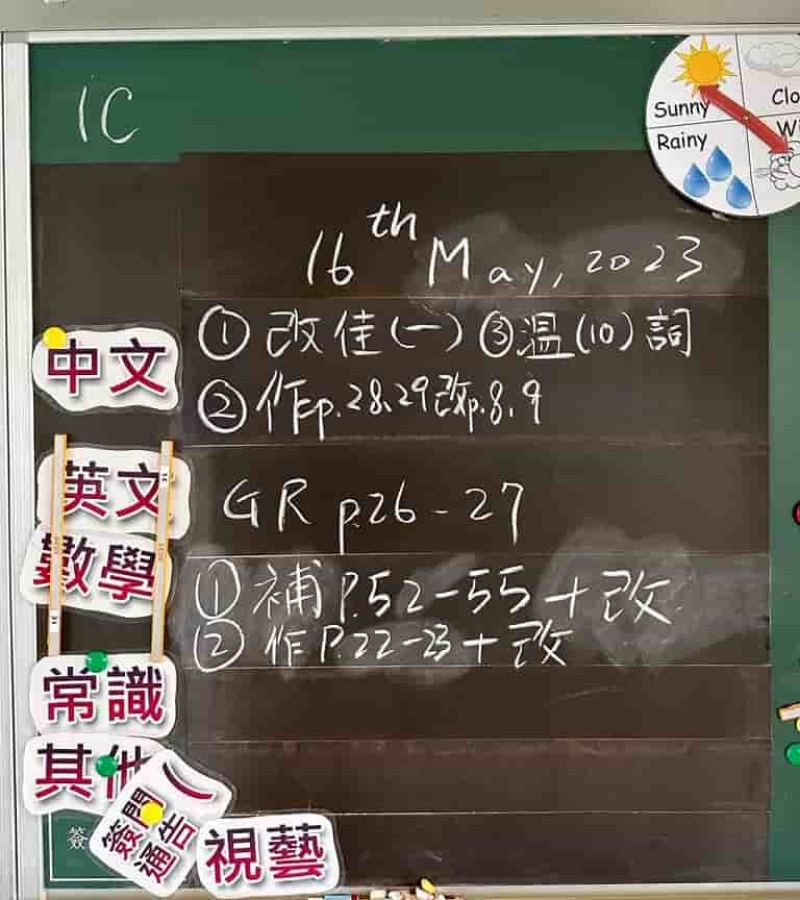 1C
Sunny
Rainy
16th May, 2023
中文
① 改佳(一) ③温(10)詞
② 作p.28、29改p.8、9
英文
GR p.26-27
數學
① 補P.52-55+改
② 作P.22-23+改
常識
其他
簽
視藝